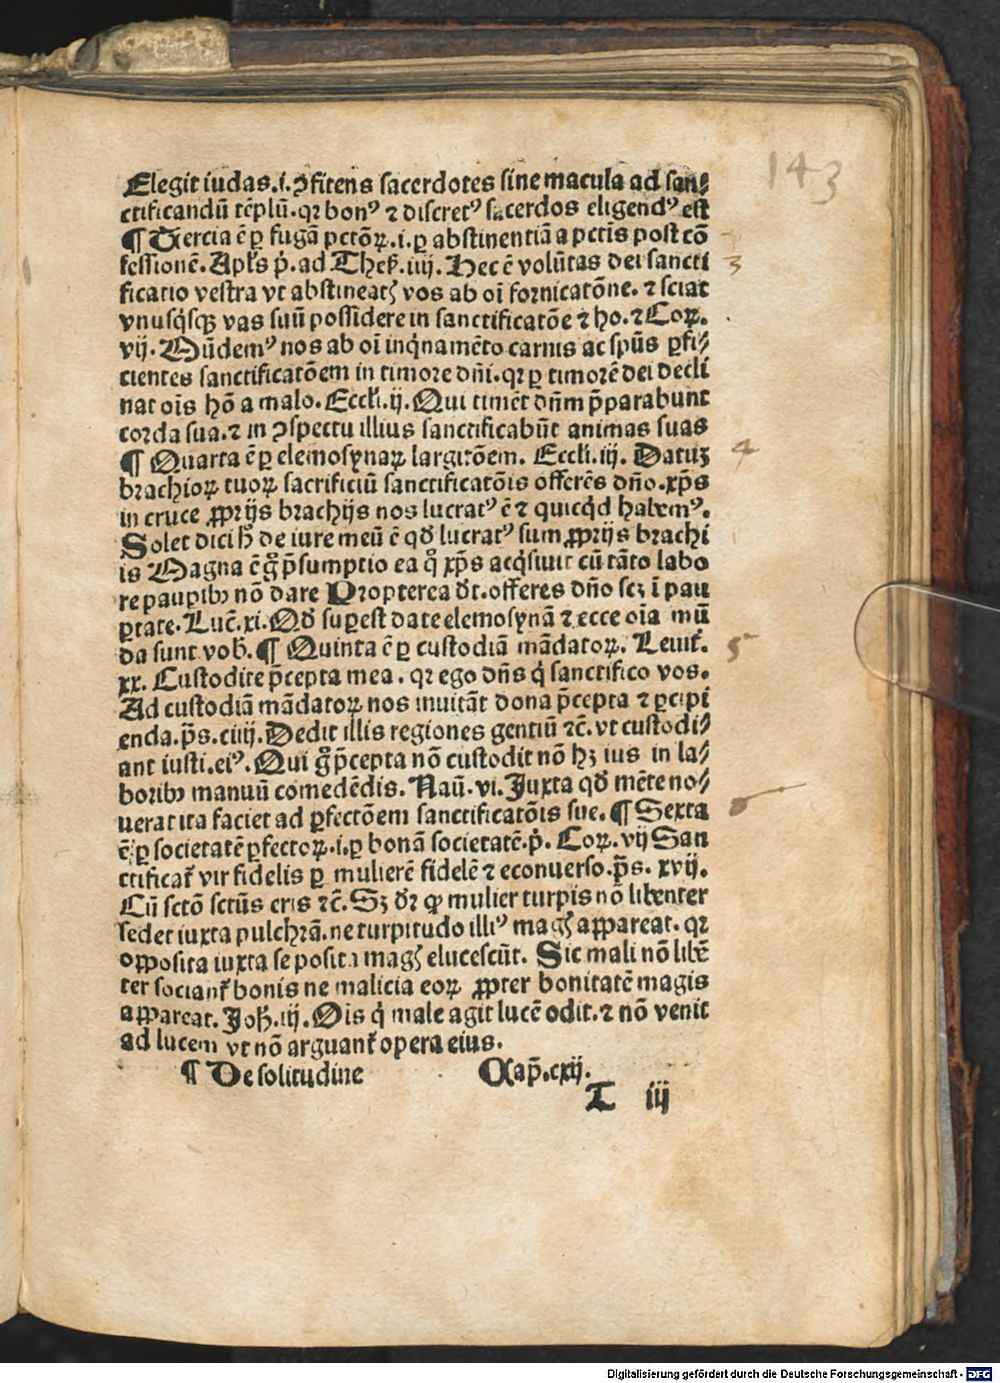 143
Elegit iudas.i.ꝯfitens sacerdotes sine macula ad san⸗
ctificandū tēplū.qꝛ bonꝰ ⁊ discretꝰ sacerdos eligendꝰ est
¶ Tercia ē ꝑ fugā pctōꝝ.i.ꝑ abstinentiā a pctīs post cō
fessionē. Apl's p̄. ad Thes̄. iiij. Hec ē volūtas dei sancti 3
ficatio vestra vt abstineatꝭ vos ab oī fornicatōne. ⁊ sciat
vnusqͥsqꝫ vas suū possidere in sanctificatōe ⁊ ho. ⁊ Coꝝ.
vij. Mūdemꝰ nos ab oī inqͥnamēto carnis ac spūs ꝑfi⸗
cientes sanctificatōem in timore dn̄i. qꝛ ꝑ timorē dei decli
nat oīs hō a malo. Eccli. ij. Qui timēt dn̄m p̄parabunt
corda sua. ⁊ in ꝯspectu illius sanctificabūt animas suas
¶ Quarta ē ꝑ elemosynaꝝ largitōem. Eccli. iij. Datuꝫ 4
brachioꝝ tuoꝝ sacrificiū sanctificatōis offerēs dn̄o. xp̄s
in cruce ꝓprijs brachijs nos lucratꝰ ē ⁊ quicqͥd habemꝰ.
Solet dici hꝭ de iure meū ē qđ lucratꝰ sum ꝓprijs brachi
is Magna ē gͦ p̄sumptio ea qͣ xp̄s acqͥsiuit cū tāto labo
re pauꝑibꝫ nō dare Propterea đr. offeres dn̄o scꝫ ī pau
ꝑtate. Luc̄. xi. Qđ suꝑest date elemosynā ⁊ ecce oīa mū
da sunt vob̄. ¶ Quinta ē ꝑ custodiā mādatoꝝ. Leuit̄. 5
xx. Custodite p̄cepta mea. qꝛ ego dn̄s qͥ sanctifico vos.
Ad custodiā mādatoꝝ nos inuitāt dona p̄cepta ⁊ ꝑcipi
enda. p̄s. ciiij. Dedit illis regiones gentiū ⁊c̄. vt custodi⸗
ant iusti. eiꝰ. Qui gͦ p̄cepta nō custodit nō hꝫ ius in la⸗
boribꝫ manuū comedēdis. Naū. vi. Juxta qđ mēte no⸗
uerat ita faciet ad ꝑfectōem sanctificatōis sue. ¶ Sexta
ē ꝑ societatē ꝑfectoꝝ. i. ꝑ bonā societatē. p̄. Coꝝ. vij San
ctificat̄ vir fidelis ꝑ mulierē fidelē ⁊ econuerso. p̄s. xvij.
Cū sctō sctūs eris ⁊c̄. Sꝫ đr ꝙ mulier turpis nō libenter
sedet iuxta pulchrā. ne turpitudo illiꝰ magꝭ appareat. qꝛ
opposita iuxta se posita magꝭ elucescūt. Sic mali nō libē
ter sociant̄ bonis ne malicia eoꝝ ꝓpter bonitatē magis
appareat. Joh̄. iij. Oīs qͥ male agit lucē odit. ⁊ nō venit
ad lucem vt nō arguant̄ opera eius.
¶ De solitudine Cap̄. cxij.
T iij
Digitalisierung gefördert durch die Deutsche Forschungsgemeinschaft - DFG